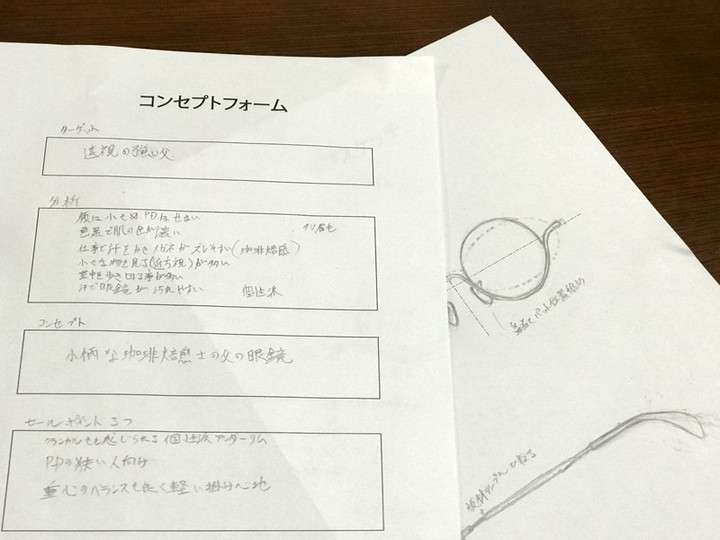 コンセプトフォーム
ターゲット
遠視の強い父
分析
顔は小さめ PDはせまい
ツリ眉毛
色黒で肌の色が濃い
仕事で汗をかきメガネがズレやすい(珈琲焙煎)
小さな物を見る(近方視)が多い
歩き回る事が多い
汗で眼鏡が汚れやすい
個性派
コンセプト
小柄な珈琲焙煎士の父の眼鏡
セールポイント3つ
クラシカルさも感じられる個性派アンダーリム
PDの狭い人向け
重心のバランスも良く軽い掛け心地
パット位置低め